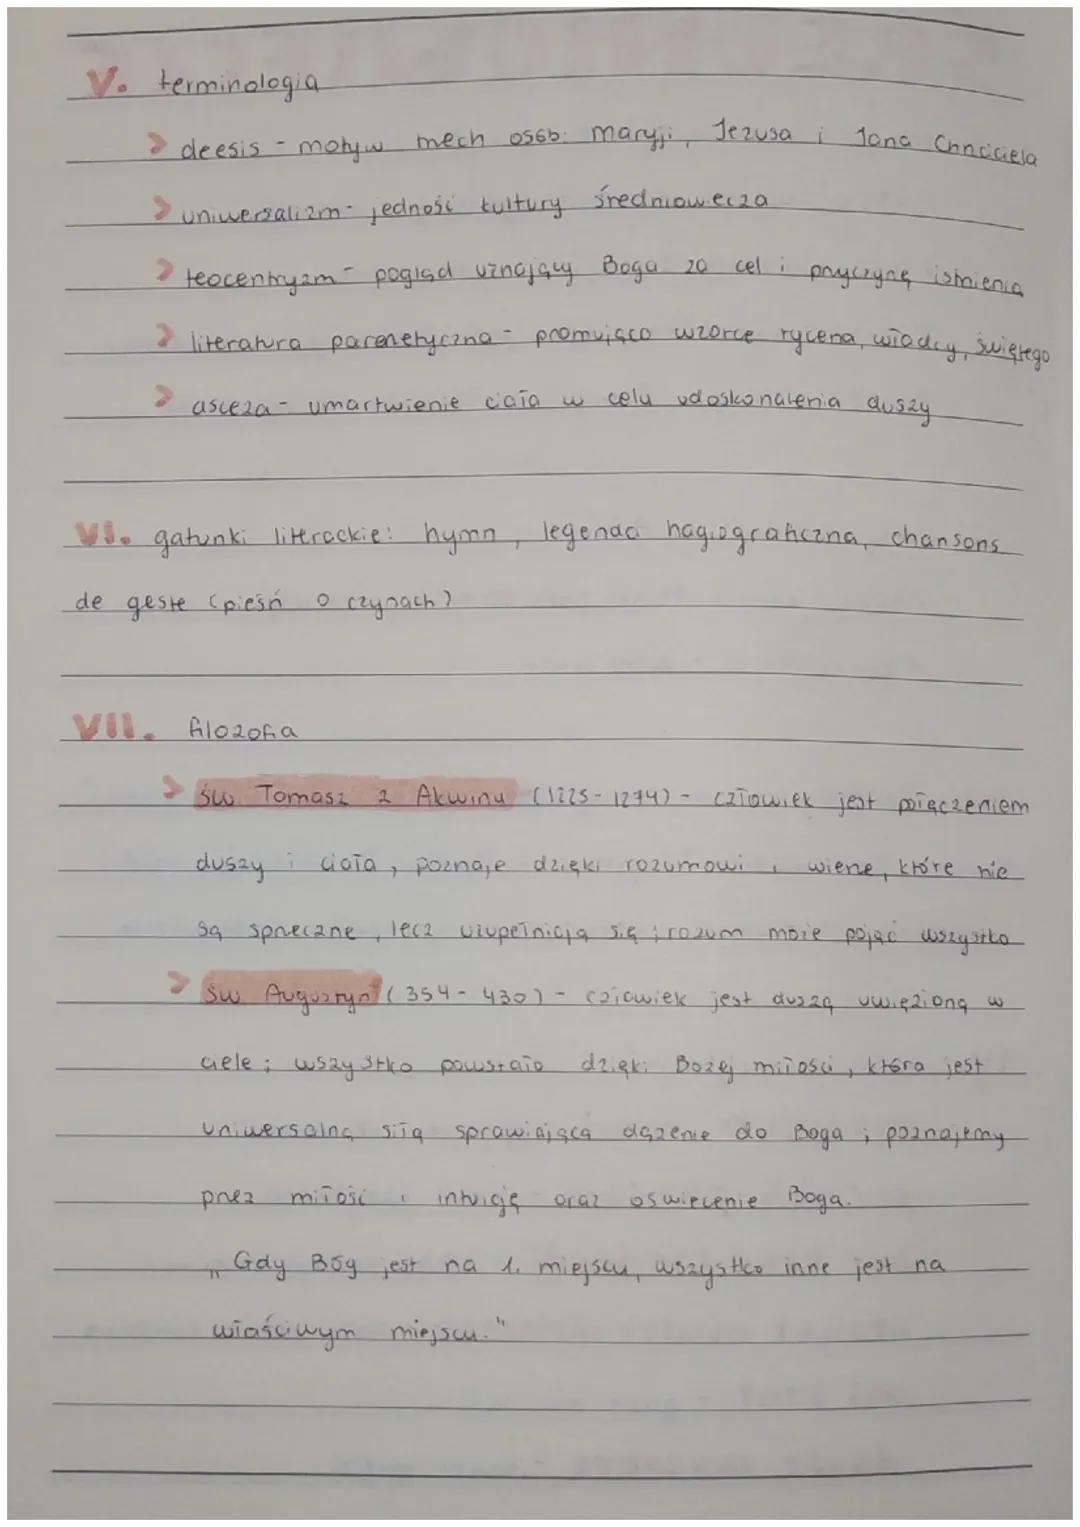 V. terminologia
> deesis - motyw trzech osób: maryji, Jezusa i Jana Chrzciciela
> uniwersalizm - jedność kultury średniowiecza
> teocentryzm - pogląd uznający Boga za cel i przyczynę istnienia
> literatura parenetyczna - promująca wzorce rycerza, władcy, świętego
> asceza - umartwienie ciała w celu udoskonalenia duszy
VI. gatunki literackie: hymn, legenda hagiograficzna, chansons
de geste (pieśń o czynach)
VII. filozofia
> św Tomasz z Akwinu (1225-1274) - człowiek jest połączeniem
duszy i ciała, poznaje dzięki rozumowi i wierze, które nie
są sprzeczne, lecz uzupełniają się; rozum może pojąć wszystko
> św Augustyn (354-430) - człowiek jest duszą uwięzioną w
ciele; wszystko powstało dzięki Bożej miłości, która jest
uniwersalną siłą sprawiającą dążenie do Boga; poznajemy
przez miłość i intuicję oraz oświecenie Boga.
"Gdy Bóg jest na 1. miejscu, wszystko inne jest na
właściwym miejscu."